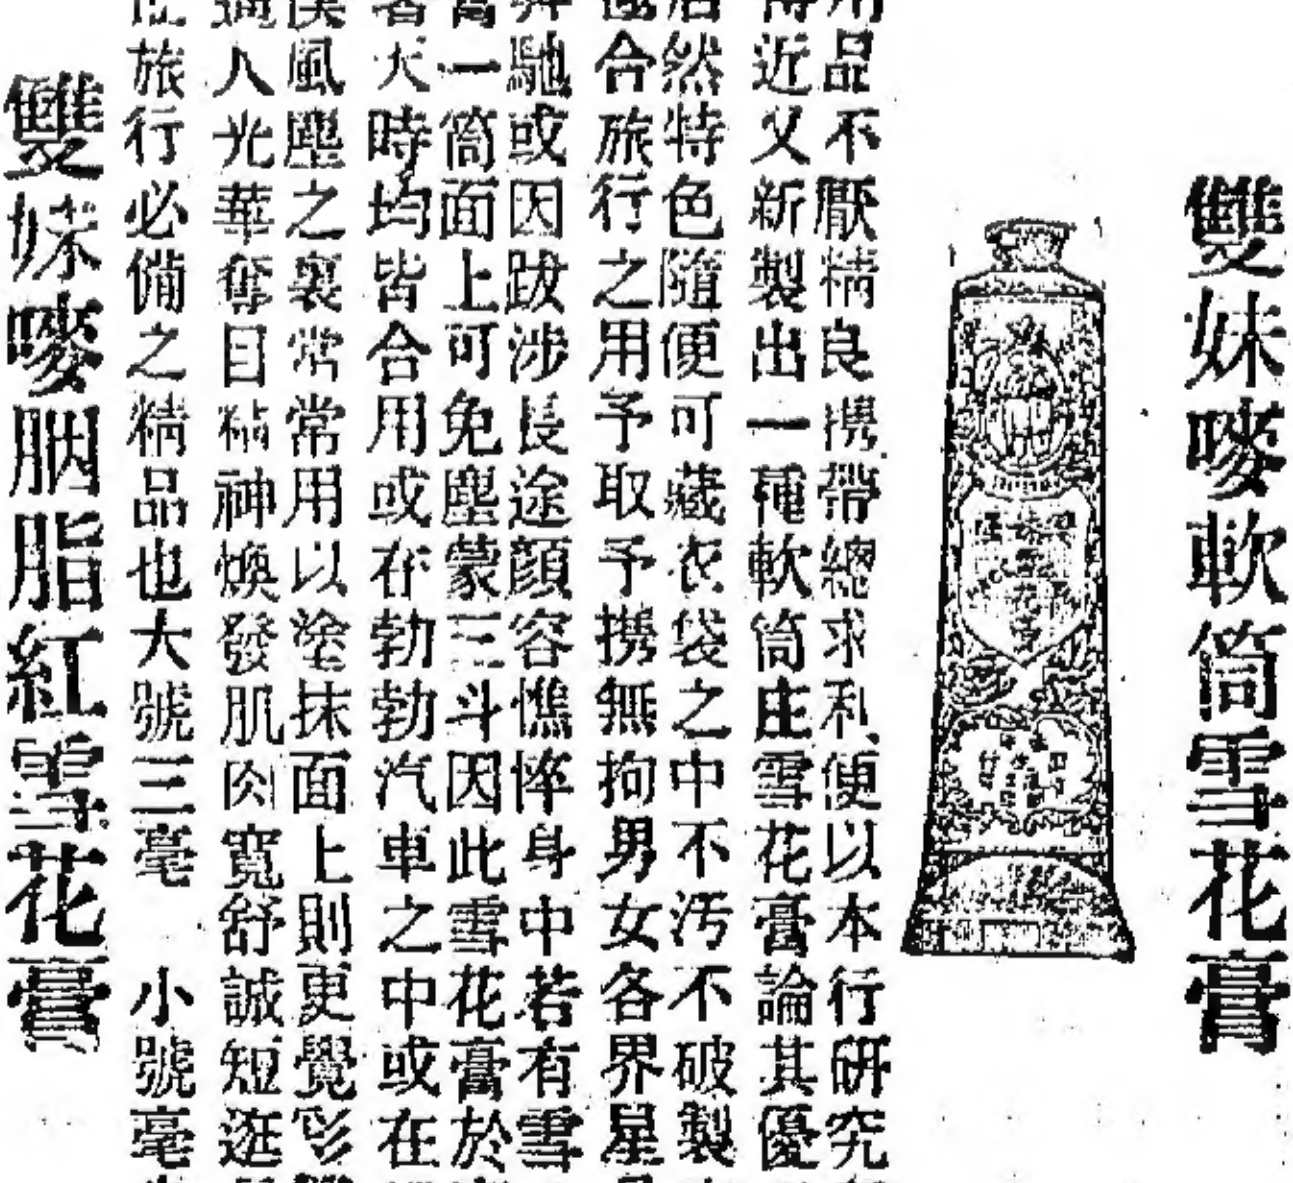 雙妹嘜軟筒雪花膏
用品不厭精良携帶總求利便以本行研究
近又新製出一種軟筒庄雪花膏論其優
然特色隨便可藏衣袋之中不污不破製
合旅行之用予取予携無拘男女各界星
馳或因跋涉長途顔容憔悴身中若有雪
膏一筒面上可免塵蒙三斗因此雪花膏於
時均皆合用或在勃勃汽車之中或在
風塵之裏常常用以塗抹面上則更覺彩
人光華奪目精神煥發肌肉寬舒誠短逛
旅行必備之精品也大號三毫 小號毫
雙妹嘜胭脂紅雪花膏